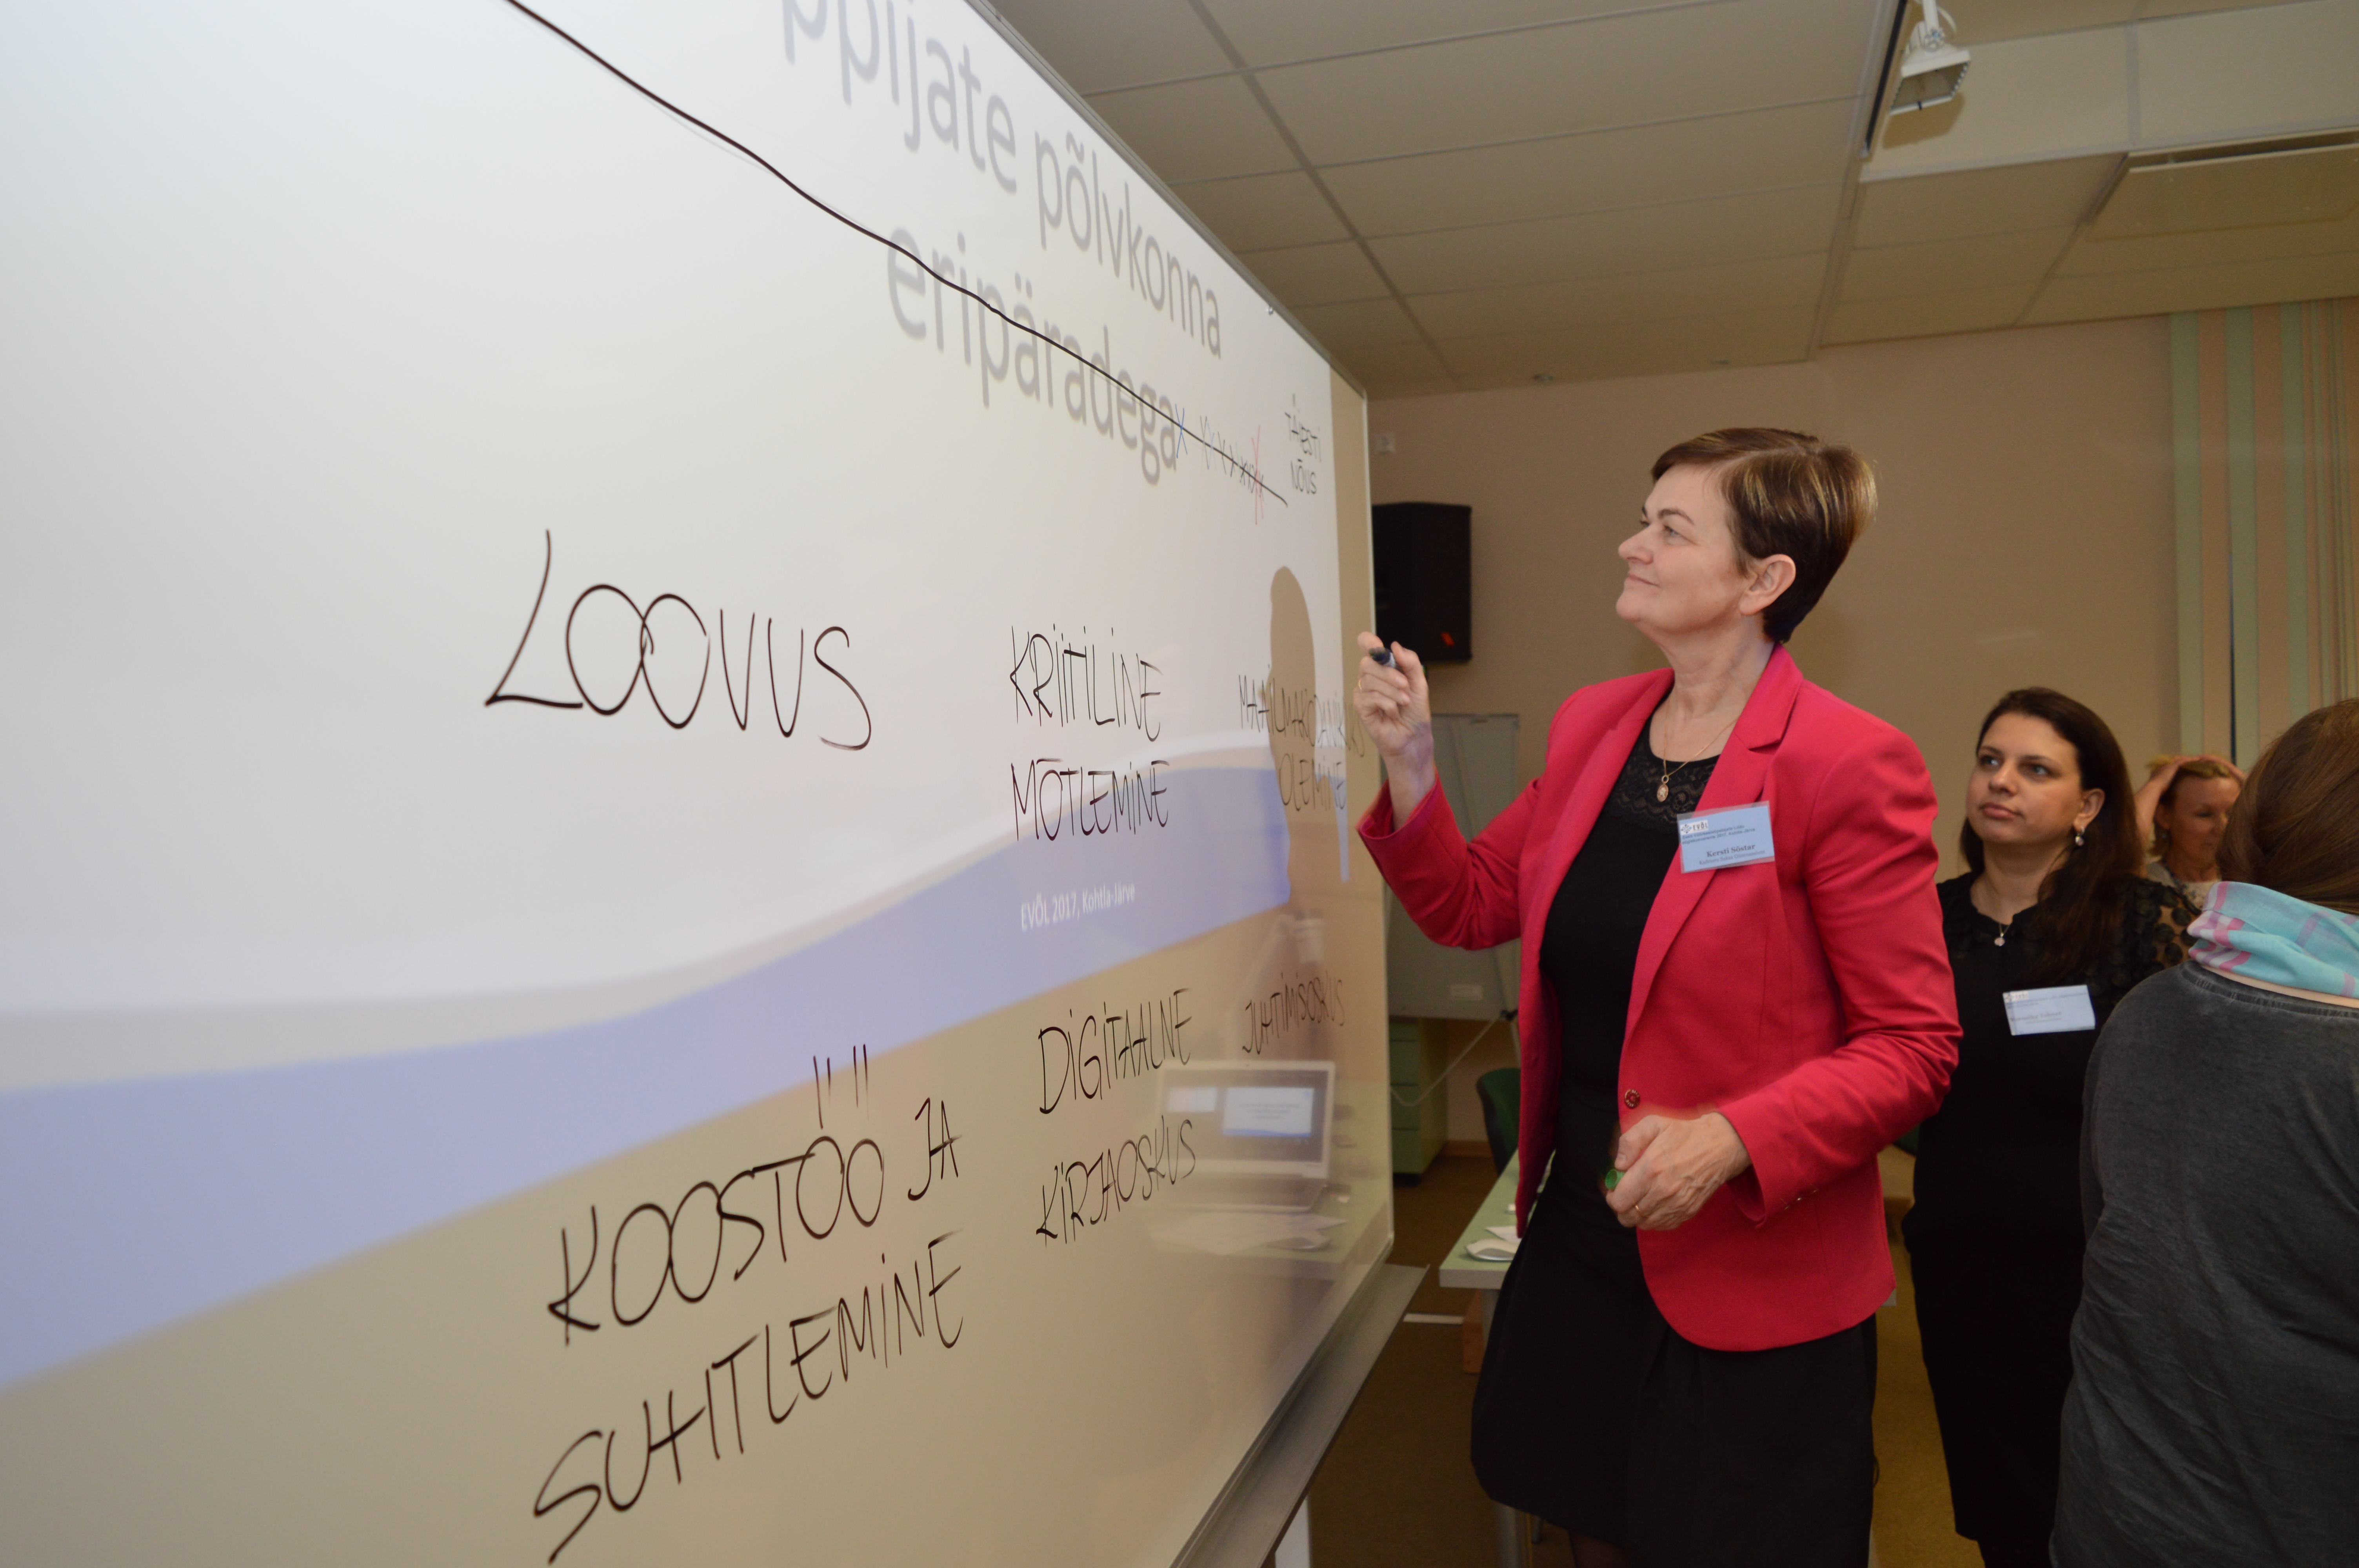 ppijate põlvkonna
eripäradega
TÄIESTI
NÕUS
LOOVUS
KRIITILINE
MÕTLEMINE
MAAILMAKODANIKUKS
OLEMINE
EVÕL 2017, Kohtla-Järve
KOOSTÖÖ JA
SUHTLEMINE
DIGITAALNE
KIRJAOSKUS
JUHTIMISOSKUS
Kersti Sõstar